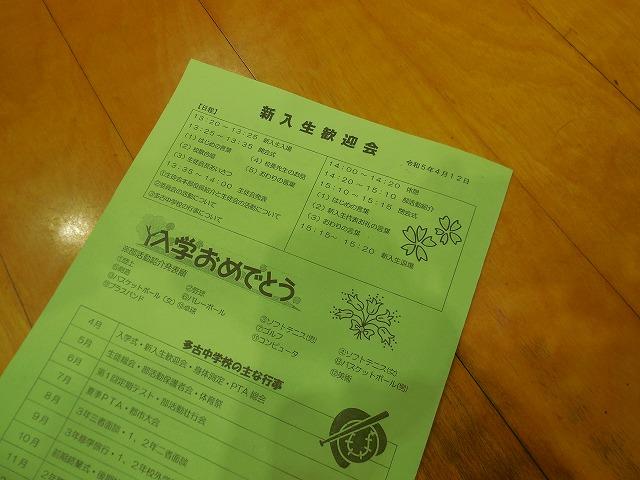 新入生歓迎会
令和5年4月12日
【日程】
13:20～13:25 新入生入場
13:25～13:35 開会式
(1) はじめの言葉
(2) 校歌合唱
(3) 生徒会長あいさつ
(4) 校長先生のお話
(5) おわりの言葉
13:35～14:00 生徒会発表
①生徒会本部役員紹介と生徒会の活動について
②委員会の活動について
③多古中学校の行事について
14:00～14:20 休憩
14:20～15:10 部活動紹介
15:10～15:15 閉会式
(1) はじめの言葉
(2) 新入生代表お礼の言葉
(3) おわりの言葉
15:15～15:20 新入生退場
入学おめでとう
※部活動紹介発表順
①陸上
②野球
③ソフトテニス(男)
④ソフトテニス(女)
⑤剣道
⑥バレーボール
⑦ゴルフ
⑧バスケットボール(男)
⑨バスケットボール(女)
⑩卓球
⑪コンピュータ
⑫美術
⑬ブラスバンド
多古中学校の主な行事
4月 入学式・新入生歓迎会・身体測定・PTA総会
5月 生徒総会・部活動保護者会・体育祭
6月 第1回定期テスト・部活動壮行会
7月 夏季PTA・郡市大会
8月 3年三者面談・1、2年二者面談
9月 3年修学旅行・1、2年校外学
10月 前期終業式・後期
11月 2年